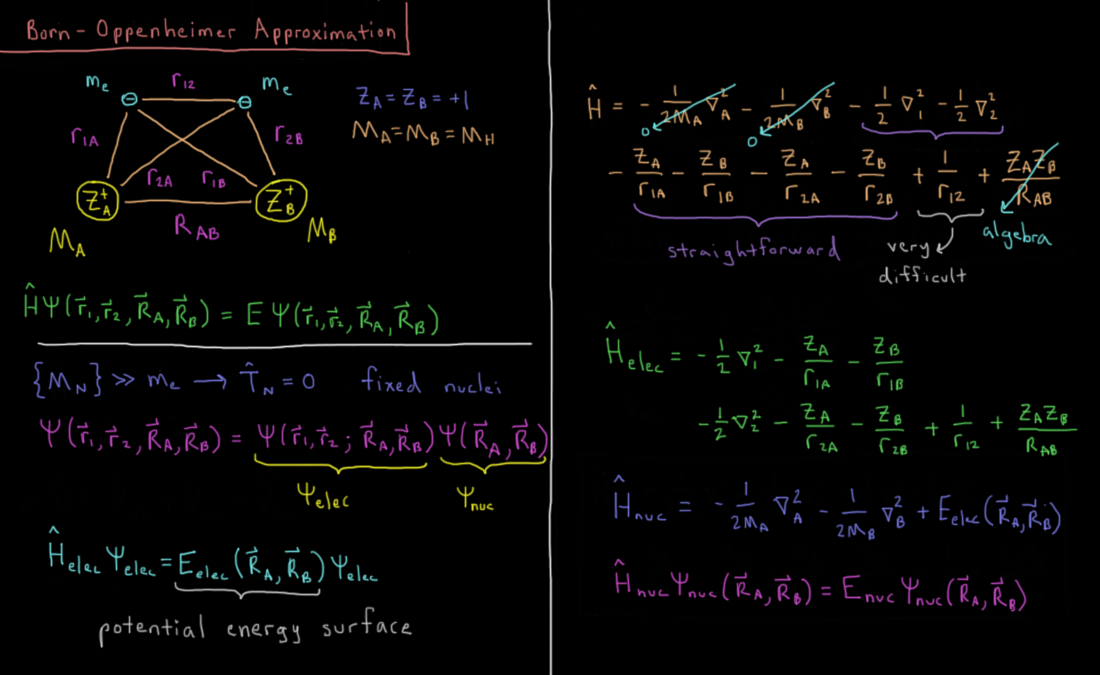 Born-Oppenheimer Approximation
mₑ r₁₂ mₑ
Z_A = Z_B = +1
M_A = M_B = M_H
r₁A r₂B
r₂A r₁B
Z_A⁺ Z_B⁺
R_AB
M_A M_B
ĤΨ(r⃗₁,r⃗₂,R⃗_A,R⃗_B) = EΨ(r⃗₁,r⃗₂,R⃗_A,R⃗_B)
{M_N} ≫ mₑ → T̂_N = 0 fixed nuclei
Ψ(r⃗₁,r⃗₂,R⃗_A,R⃗_B) = Ψ(r⃗₁,r⃗₂;R⃗_A,R⃗_B) Ψ(R⃗_A,R⃗_B)
Ψ_elec Ψ_nuc
Ĥ_elec Ψ_elec = E_elec(R⃗_A,R⃗_B) Ψ_elec
potential energy surface
Ĥ = - 1/2M_A ∇²_A - 1/2M_B ∇²_B - 1/2 ∇²₁ - 1/2 ∇²₂
0 0
- Z_A/r₁A - Z_B/r₁B - Z_A/r₂A - Z_B/r₂B + 1/r₁₂ + Z_A Z_B/R_AB
straightforward very difficult algebra
Ĥ_elec = - 1/2 ∇²₁ - Z_A/r₁A - Z_B/r₁B
- 1/2 ∇²₂ - Z_A/r₂A - Z_B/r₂B + 1/r₁₂ + Z_A Z_B/R_AB
Ĥ_nuc = - 1/2M_A ∇²_A - 1/2M_B ∇²_B + E_elec(R⃗_A,R⃗_B)
Ĥ_nuc Ψ_nuc(R⃗_A,R⃗_B) = E_nuc Ψ_nuc(R⃗_A,R⃗_B)